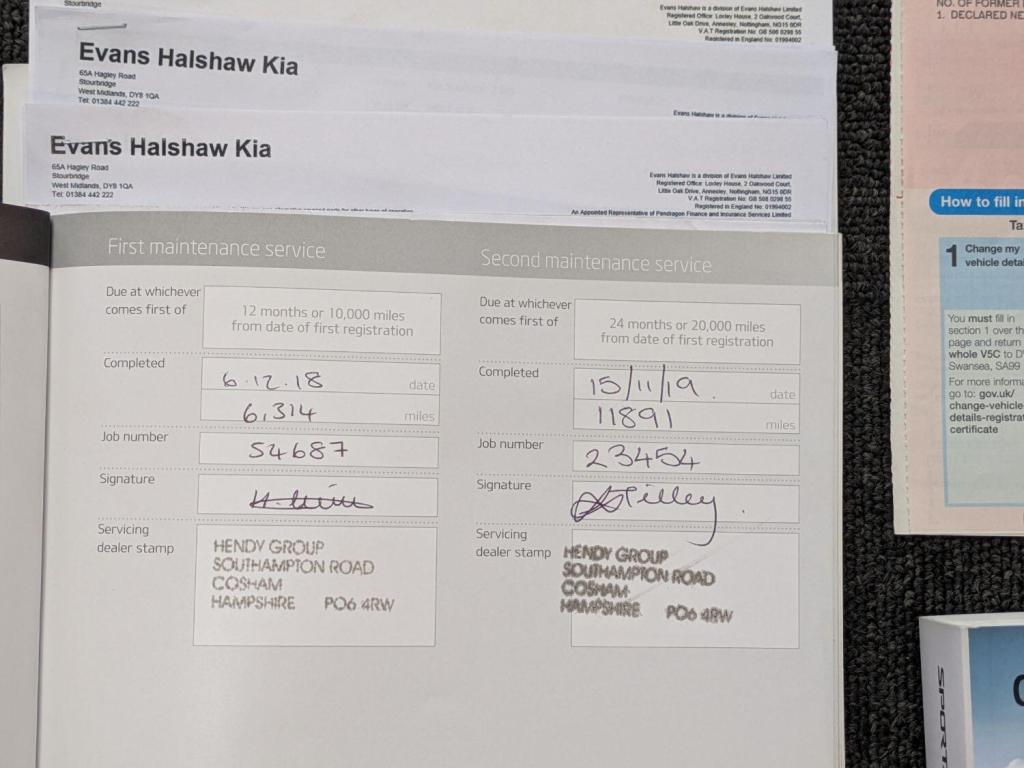 Stourbridge
Evans Halshaw is a division of Evans Halshaw Limited
Registered Office: Loxley House, 2 Oakwood Court,
Little Oak Drive, Annesley, Nottingham, NG15 0DR
V.A.T Registration No: GB 508 0298 55
Registered in England No: 01994002
Evans Halshaw Kia
65A Hagley Road
Stourbridge
West Midlands, DY8 1QA
Tel: 01384 442 222
Evans Halshaw is a division of Evans Halshaw Limited
Evans Halshaw Kia
65A Hagley Road
Stourbridge
West Midlands, DY8 1QA
Tel: 01384 442 222
Evans Halshaw is a division of Evans Halshaw Limited
Registered Office: Loxley House, 2 Oakwood Court,
Little Oak Drive, Annesley, Nottingham, NG15 0DR
V.A.T Registration No: GB 508 0298 55
Registered in England No: 01994002
An Appointed Representative of Pendragon Finance and Insurance Services Limited
First maintenance service
Due at whichever
comes first of
12 months or 10,000 miles
from date of first registration
Completed
6.12.18 date
6,314 miles
Job number
54687
Signature
Servicing
dealer stamp
HENDY GROUP
SOUTHAMPTON ROAD
COSHAM
HAMPSHIRE PO6 4RW
Second maintenance service
Due at whichever
comes first of
24 months or 20,000 miles
from date of first registration
Completed
15/11/19. date
11891 miles
Job number
23454
Signature
Tilley
Servicing
dealer stamp
HENDY GROUP
SOUTHAMPTON ROAD
COSHAM
HAMPSHIRE PO6 4RW
NO. OF FORMER
1. DECLARED NE
How to fill in
Ta
1 Change my
vehicle detai
You must fill in
section 1 over th
page and return
whole V5C to D
Swansea, SA99
For more informa
go to: gov.uk/
change-vehicle
details-registrat
certificate
SPORT